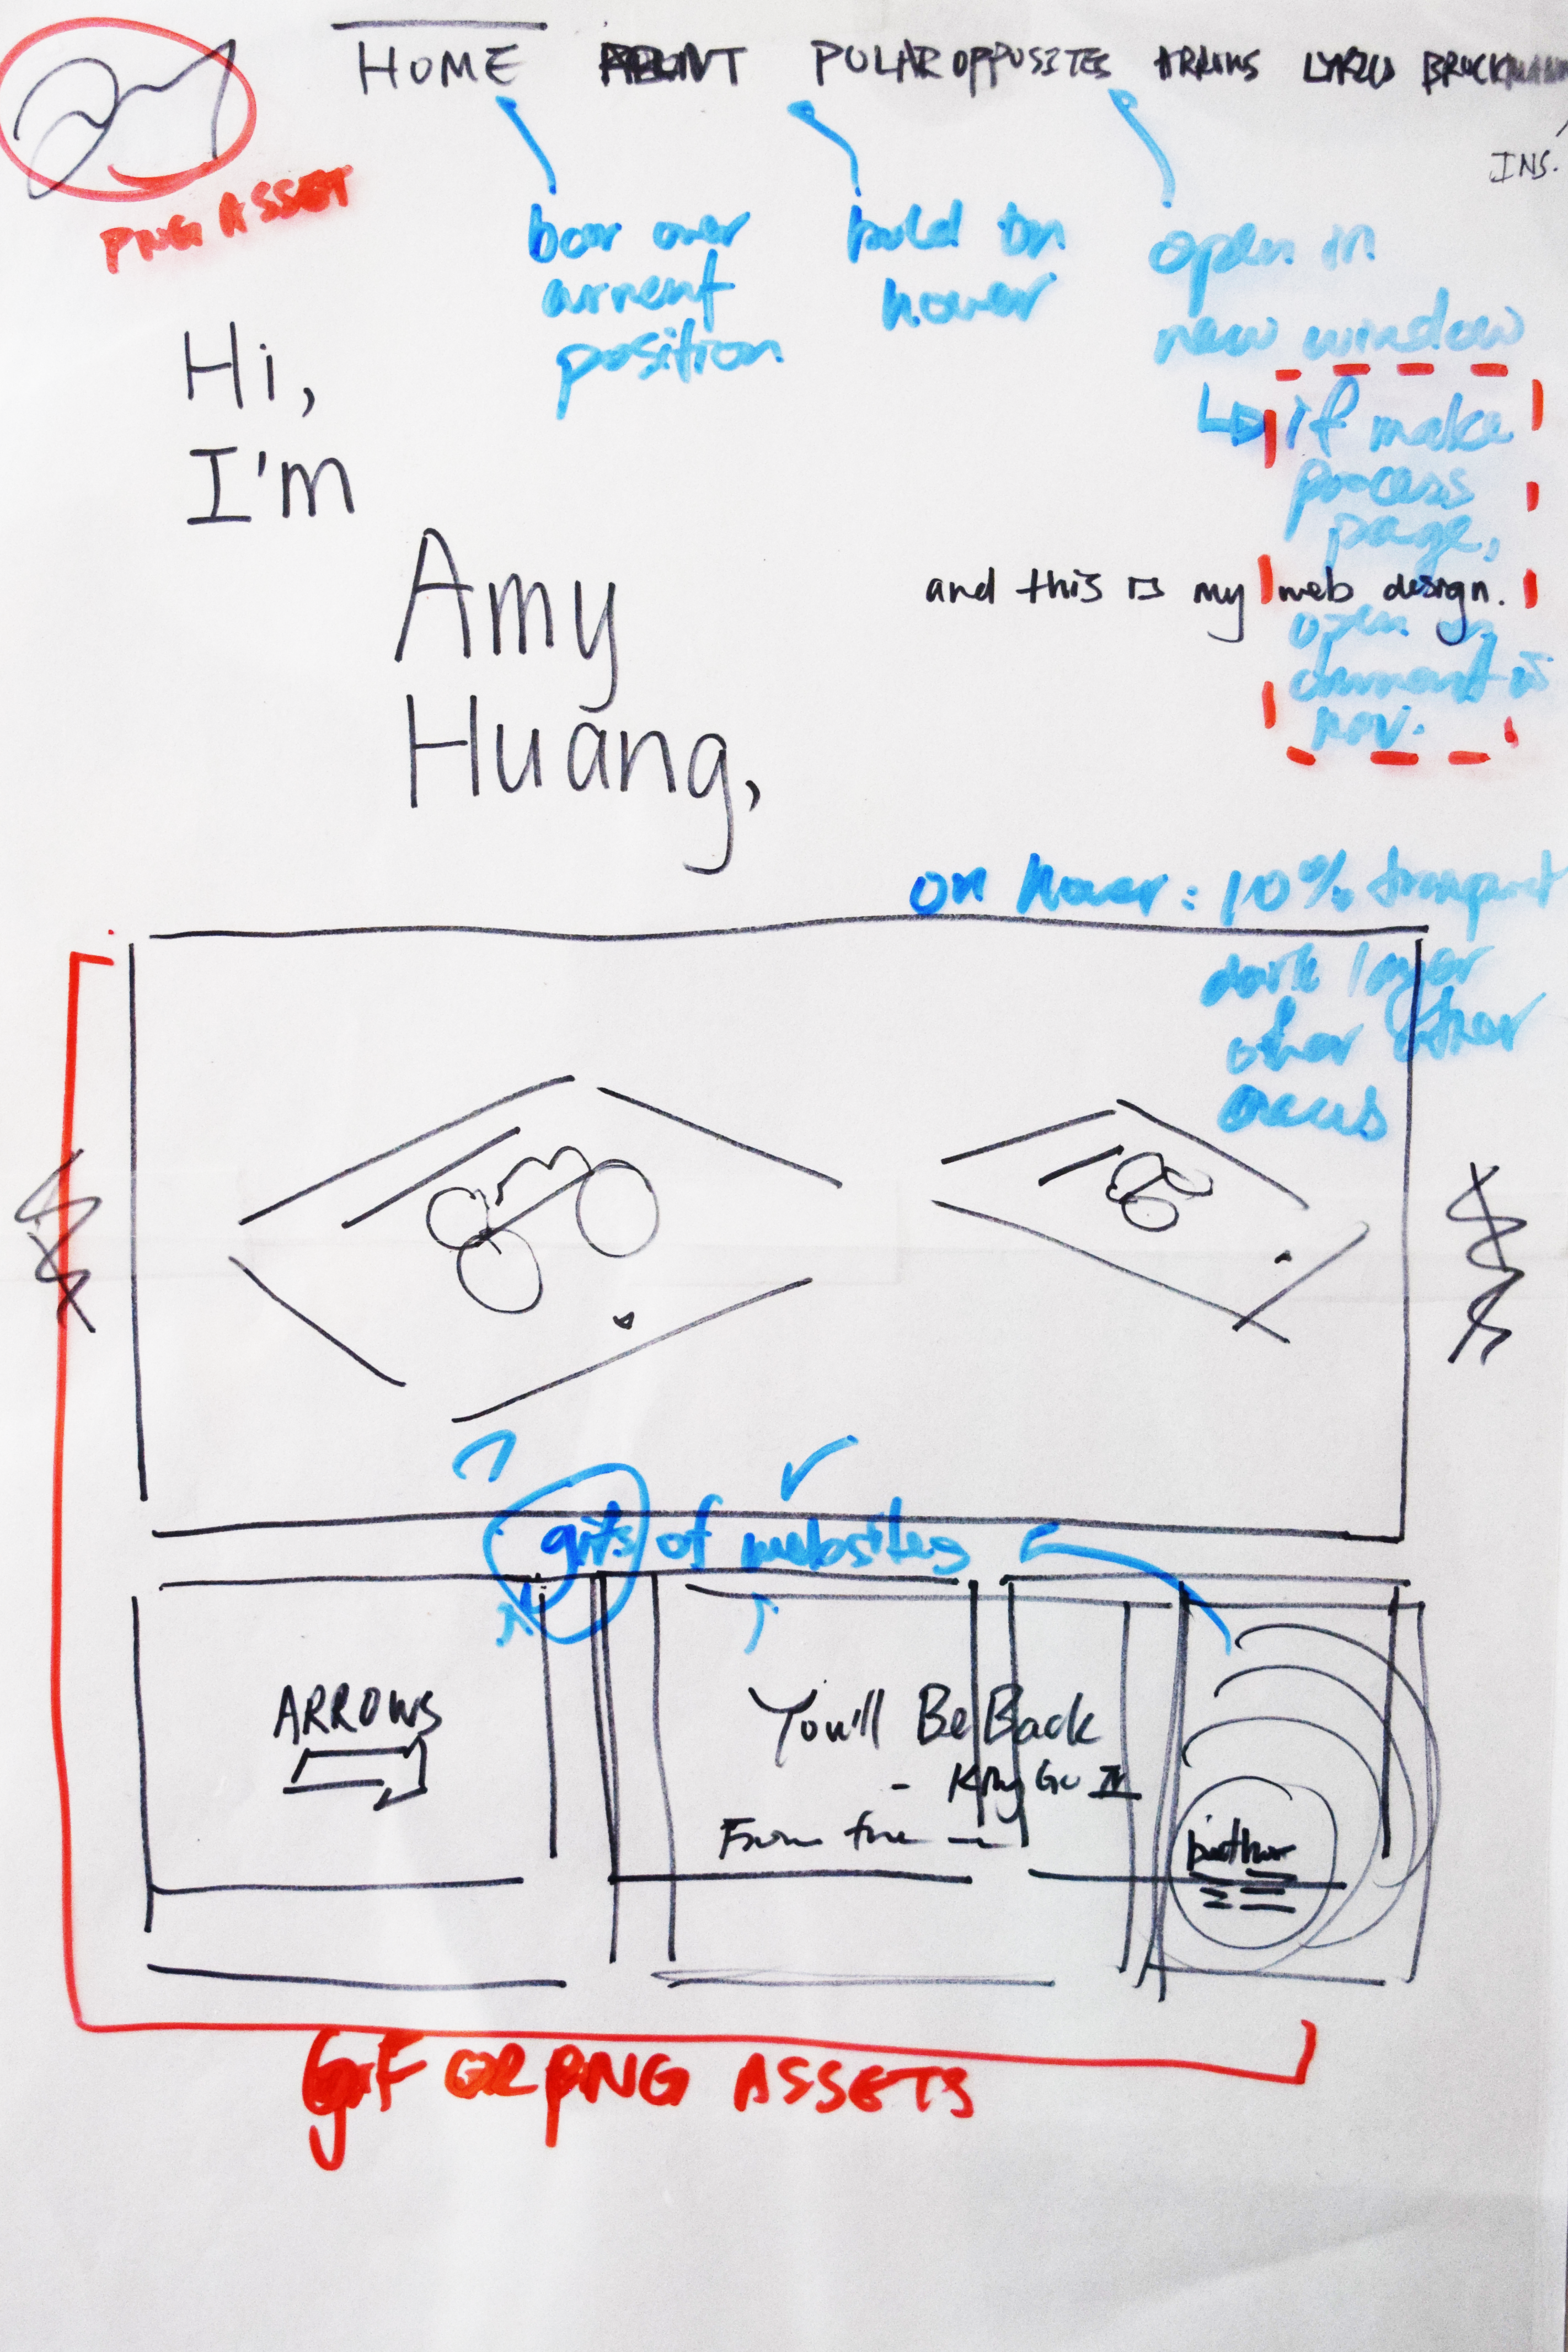 HOME ABOUT POLAR OPPOSITES ARROWS LYRICS BROCKMANN
INS.
PNG ASSET
bar over
current
position
bold on
hover
open in
new window
if make
process
page,
open in
current w
nav.
Hi,
I'm
Amy
Huang,
and this is my web design.
on hover: 10% transparent
dark layor
other other
areas
gifs of websites
ARROWS
You'll Be Back
- King Ge III
From the
GIF OR PNG ASSETS